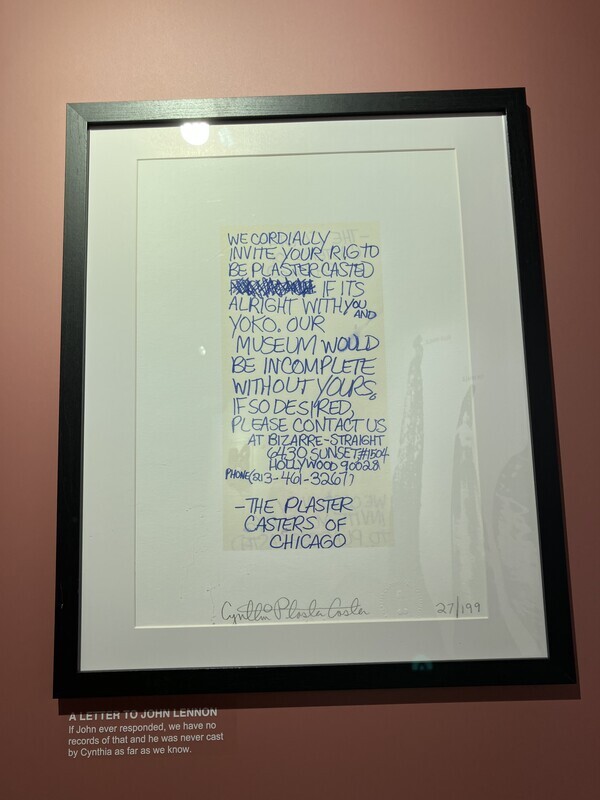 WE CORDIALLY
INVITE YOUR RIG TO
BE PLASTER CASTED
IF ITS
ALRIGHT WITH YOU AND
YOKO. OUR
MUSEUM WOULD
BE INCOMPLETE
WITHOUT YOURS.
IF SO DESIRED,
PLEASE CONTACT US
AT BIZARRE-STRAIGHT
6430 SUNSET #1504
HOLLYWOOD 90028
PHONE (213-461-3267)
-THE PLASTER
CASTERS OF
CHICAGO
Cynthia Plaster Caster 27/199
A LETTER TO JOHN LENNON
If John ever responded, we have no
records of that and he was never cast
by Cynthia as far as we know.